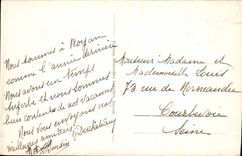 Nous sommes à Royan
comme l'année dernière
Nous avons un temps
superbe et nous sommes
bien contents de nos vacances
Nous vous envoyons nos
meilleures amitiés
Monsieur Madame et
Mademoiselle Louis
73 rue de Normandie
Courbevoie
Seine